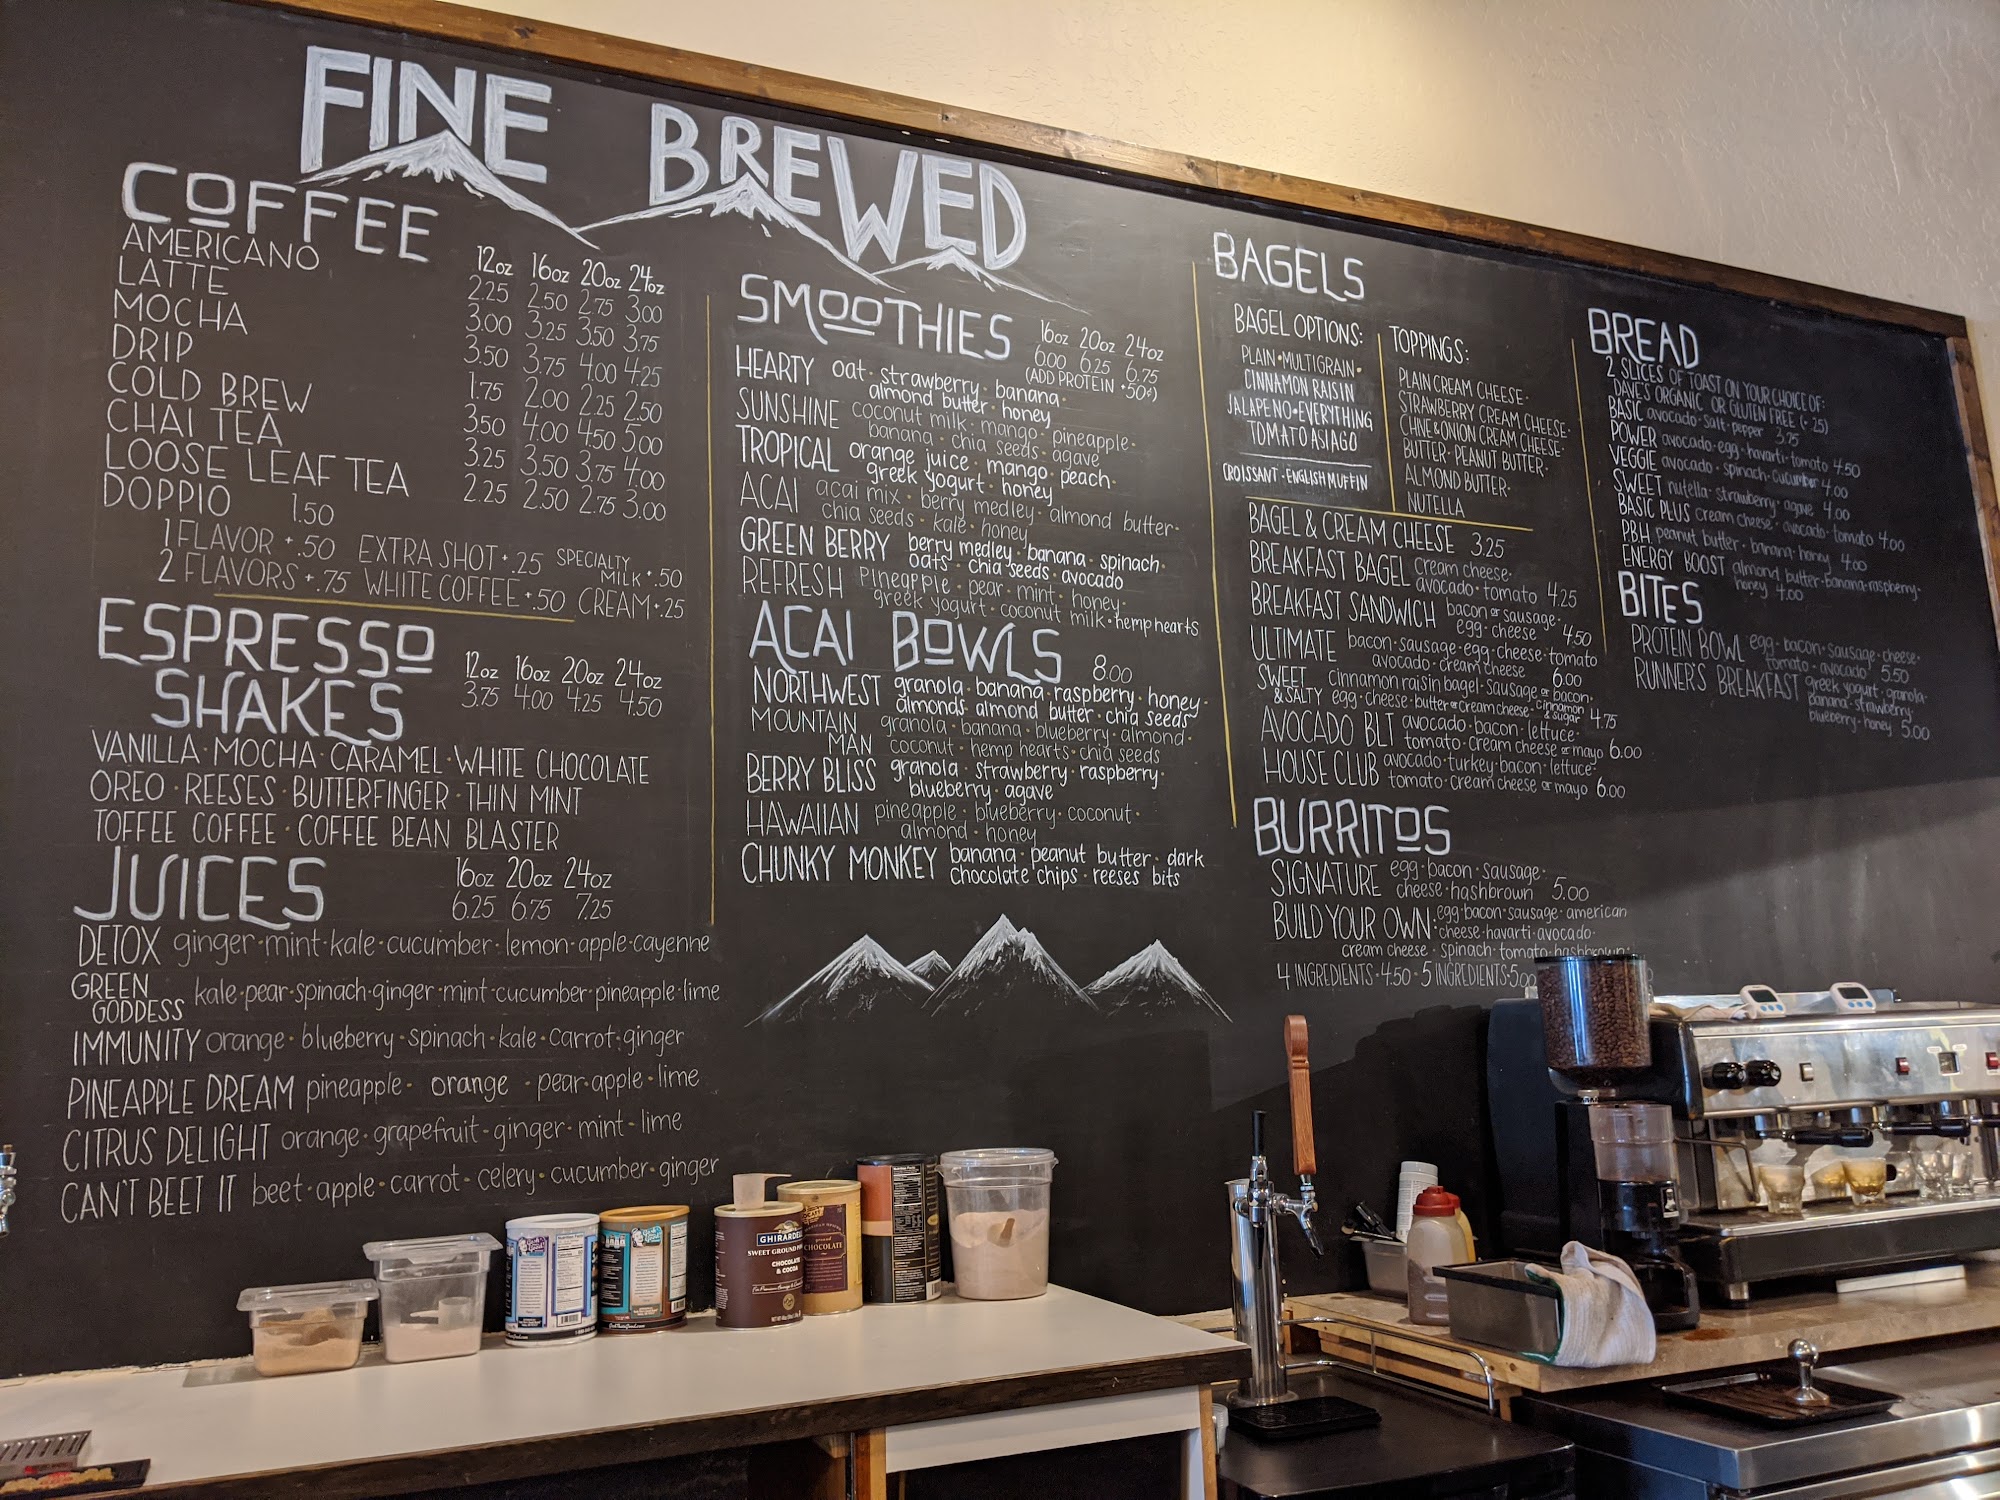 FINE BREWED
COFFEE
12oz 16oz 20oz 24oz
AMERICANO 2.25 2.50 2.75 3.00
LATTE 3.00 3.25 3.50 3.75
MOCHA 3.50 3.75 4.00 4.25
DRIP 1.75 2.00 2.25 2.50
COLD BREW 3.50 4.00 4.50 5.00
CHAI TEA 3.25 3.50 3.75 4.00
LOOSE LEAF TEA 2.25 2.50 2.75 3.00
DOPPIO 1.50
1 FLAVOR +.50 EXTRA SHOT +.25 SPECIALTY MILK +.50
2 FLAVORS +.75 WHITE COFFEE +.50 CREAM +.25
ESPRESSO
SHAKES
12oz 16oz 20oz 24oz
3.75 4.00 4.25 4.50
VANILLA · MOCHA · CARAMEL · WHITE CHOCOLATE
OREO · REESES · BUTTERFINGER · THIN MINT
TOFFEE COFFEE · COFFEE BEAN BLASTER
JUICES
16oz 20oz 24oz
6.25 6.75 7.25
DETOX ginger · mint · kale · cucumber · lemon · apple · cayenne
GREEN
GODDESS kale · pear · spinach · ginger · mint · cucumber · pineapple · lime
IMMUNITY orange · blueberry · spinach · kale · carrot · ginger
PINEAPPLE DREAM pineapple · orange · pear · apple · lime
CITRUS DELIGHT orange · grapefruit · ginger · mint · lime
CAN'T BEET IT beet · apple · carrot · celery · cucumber · ginger
SMOOTHIES
16oz 20oz 24oz
6.00 6.25 6.75
(ADD PROTEIN +50¢)
HEARTY oat · strawberry · banana ·
almond butter · honey
SUNSHINE coconut milk · mango · pineapple ·
banana · chia seeds · agave
TROPICAL orange juice · mango · peach ·
greek yogurt · honey
ACAI acai mix · berry medley · almond butter ·
chia seeds · kale · honey
GREEN BERRY berry medley · banana · spinach ·
oats · chia seeds · avocado
REFRESH pineapple · pear · mint · honey ·
greek yogurt · coconut milk · hemp hearts
ACAI BOWLS 8.00
NORTHWEST granola · banana · raspberry · honey ·
almonds almond butter · chia seeds
MOUNTAIN granola · banana · blueberry · almond ·
MAN coconut · hemp hearts · chia seeds
BERRY BLISS granola · strawberry · raspberry ·
blueberry · agave
HAWAIIAN pineapple · blueberry · coconut ·
almond · honey
CHUNKY MONKEY banana · peanut butter · dark
chocolate chips · reeses bits
BAGELS
BAGEL OPTIONS:
PLAIN · MULTIGRAIN ·
CINNAMON RAISIN
JALAPENO · EVERYTHING
TOMATO ASIAGO
CROISSANT · ENGLISH MUFFIN
TOPPINGS:
PLAIN CREAM CHEESE ·
STRAWBERRY CREAM CHEESE ·
CHIVE & ONION CREAM CHEESE ·
BUTTER · PEANUT BUTTER ·
ALMOND BUTTER ·
NUTELLA
BAGEL & CREAM CHEESE 3.25
BREAKFAST BAGEL cream cheese ·
avocado · tomato 4.25
BREAKFAST SANDWICH bacon or sausage ·
egg · cheese 4.50
ULTIMATE bacon · sausage · egg · cheese · tomato
avocado · cream cheese 6.00
SWEET cinnamon raisin bagel · sausage or bacon ·
& SALTY egg · cheese · butter or cream cheese · cinnamon & sugar 4.75
AVOCADO BLT avocado · bacon · lettuce ·
tomato · cream cheese or mayo 6.00
HOUSE CLUB avocado · turkey · bacon · lettuce ·
tomato · cream cheese or mayo 6.00
BURRITOS
SIGNATURE egg · bacon · sausage ·
cheese · hashbrown 5.00
BUILD YOUR OWN: egg · bacon · sausage · american
cheese · havarti · avocado ·
cream cheese · spinach · tomato · hashbrown ·
4 INGREDIENTS · 4.50 · 5 INGREDIENTS 5.00
BREAD
2 SLICES OF TOAST ON YOUR CHOICE OF:
DAVE'S ORGANIC OR GLUTEN FREE (+.25)
BASIC avocado · salt · pepper 3.75
POWER avocado · egg · havarti · tomato 4.50
VEGGIE avocado · spinach · cucumber 4.00
SWEET nutella · strawberry · agave 4.00
BASIC PLUS cream cheese · avocado · tomato 4.00
PBH peanut butter · banana · honey 4.00
ENERGY BOOST almond butter · banana · raspberry ·
honey 4.00
BITES
PROTEIN BOWL egg · bacon · sausage · cheese ·
tomato · avocado 5.50
RUNNER'S BREAKFAST greek yogurt · granola ·
banana · strawberry ·
blueberry · honey 5.00
GHIRARDELLI
SWEET GROUND
CHOCOLATE
& COCOA
CHOCOLATE